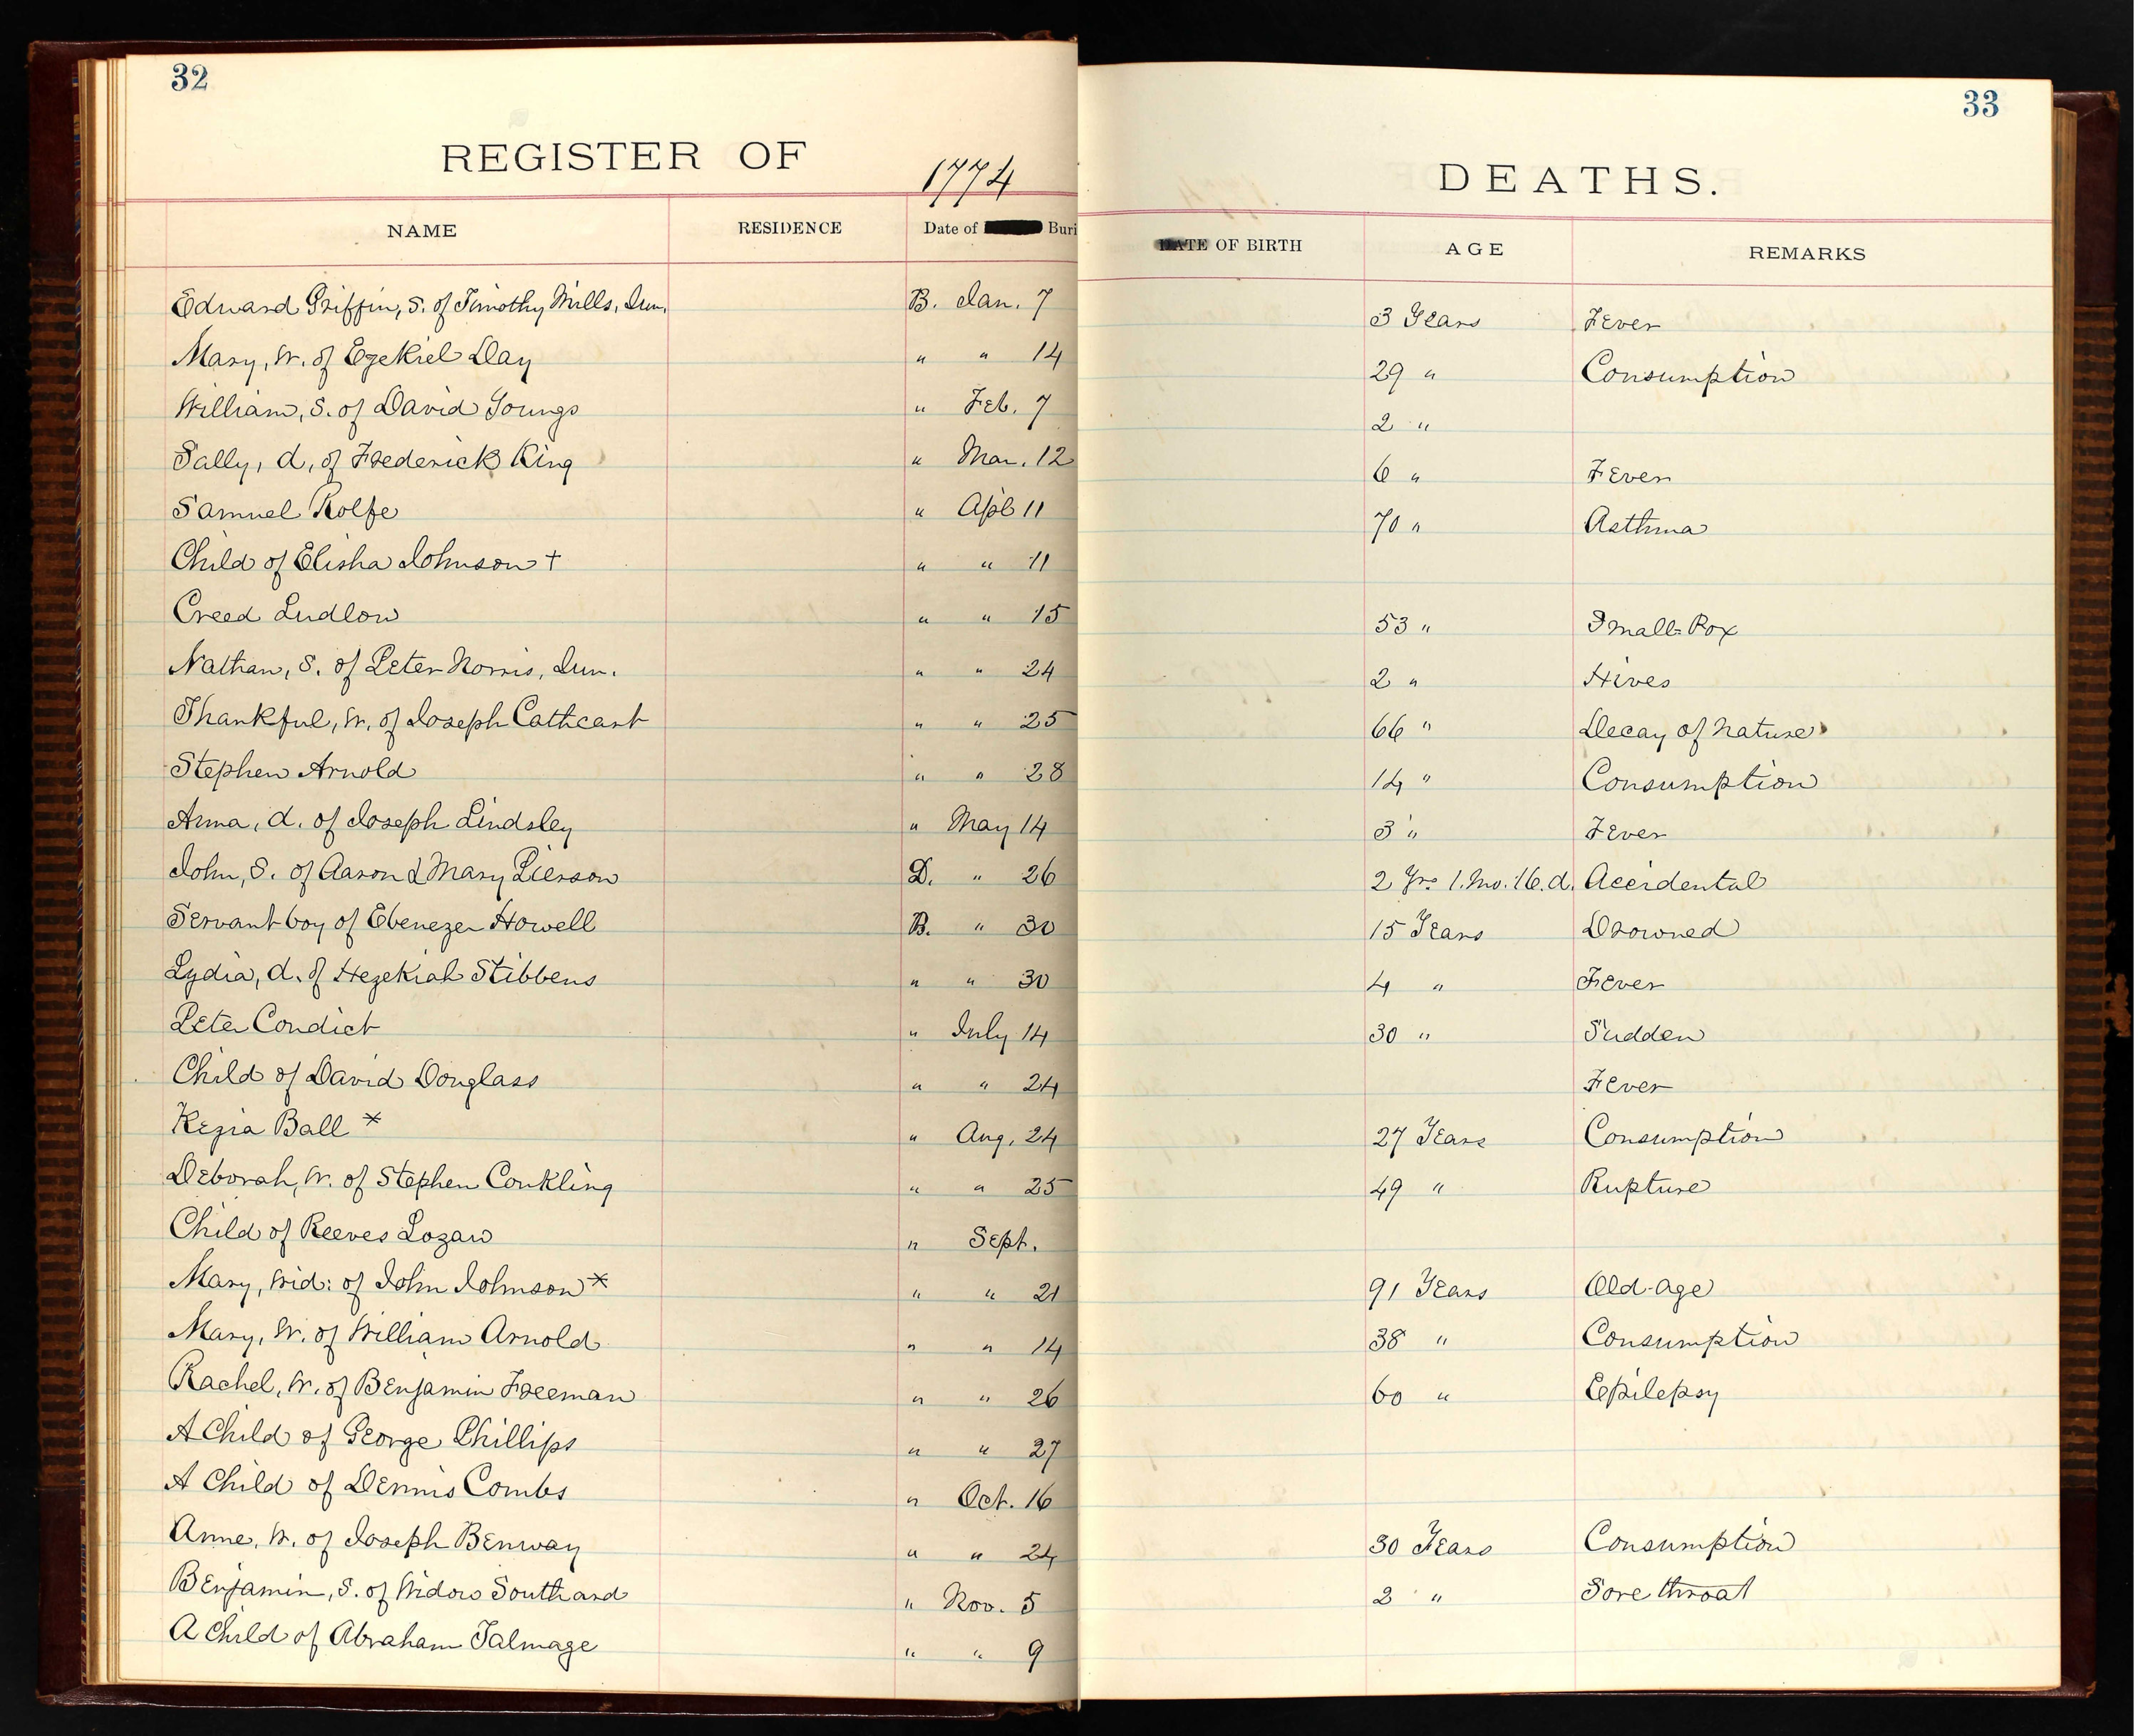 32
REGISTER OF
1774
NAME RESIDENCE Date of Buri
Edward Griffin, S. of Timothy Mills, Jun. B. Jan. 7
Mary, W. of Ezekiel Day " " 14
William, S. of David Youngs " Feb. 7
Sally, d. of Frederick King " Mar. 12
Samuel Rolfe " Apl 11
Child of Elisha Johnson + " " 11
Creed Ludlow " " 15
Nathan, S. of Peter Norris, Jun. " " 24
Thankful, W. of Joseph Cathcart " " 25
Stephen Arnold " " 28
Anna, d. of Joseph Lindsley " May 14
John, S. of Aaron & Mary Pierson D. " 26
Servant boy of Ebenezer Howell B. " 30
Lydia, d. of Hezekiah Stibbens " " 30
Peter Condict " July 14
Child of David Douglass " " 24
Kezia Ball * " Aug. 24
Deborah, W. of Stephen Conkling " " 25
Child of Reeves Lozaw " Sept.
Mary, Wid: of John Johnson * " " 21
Mary, W. of William Arnold " " 14
Rachel, W. of Benjamin Freeman " " 26
A Child of George Phillips " " 27
A Child of Dennis Combs " Oct. 16
Anne, W. of Joseph Benway " " 24
Benjamin, S. of Widow Southard " Nov. 5
A Child of Abraham Talmage " " 9
33
DEATHS.
DATE OF BIRTH AGE REMARKS
3 Years Fever
29 " Consumption
2 "
6 " Fever
70 " Asthma
53 " Small-Pox
2 " Hives
66 " Decay of Nature
14 " Consumption
3 " Fever
2 Yrs 1. Mo. 16. d. Accidental
15 Years Drowned
4 " Fever
30 " Sudden
Fever
27 Years Consumption
49 " Rupture
91 Years Old-age
38 " Consumption
60 " Epilepsy
30 Years Consumption
2 " Sore throat